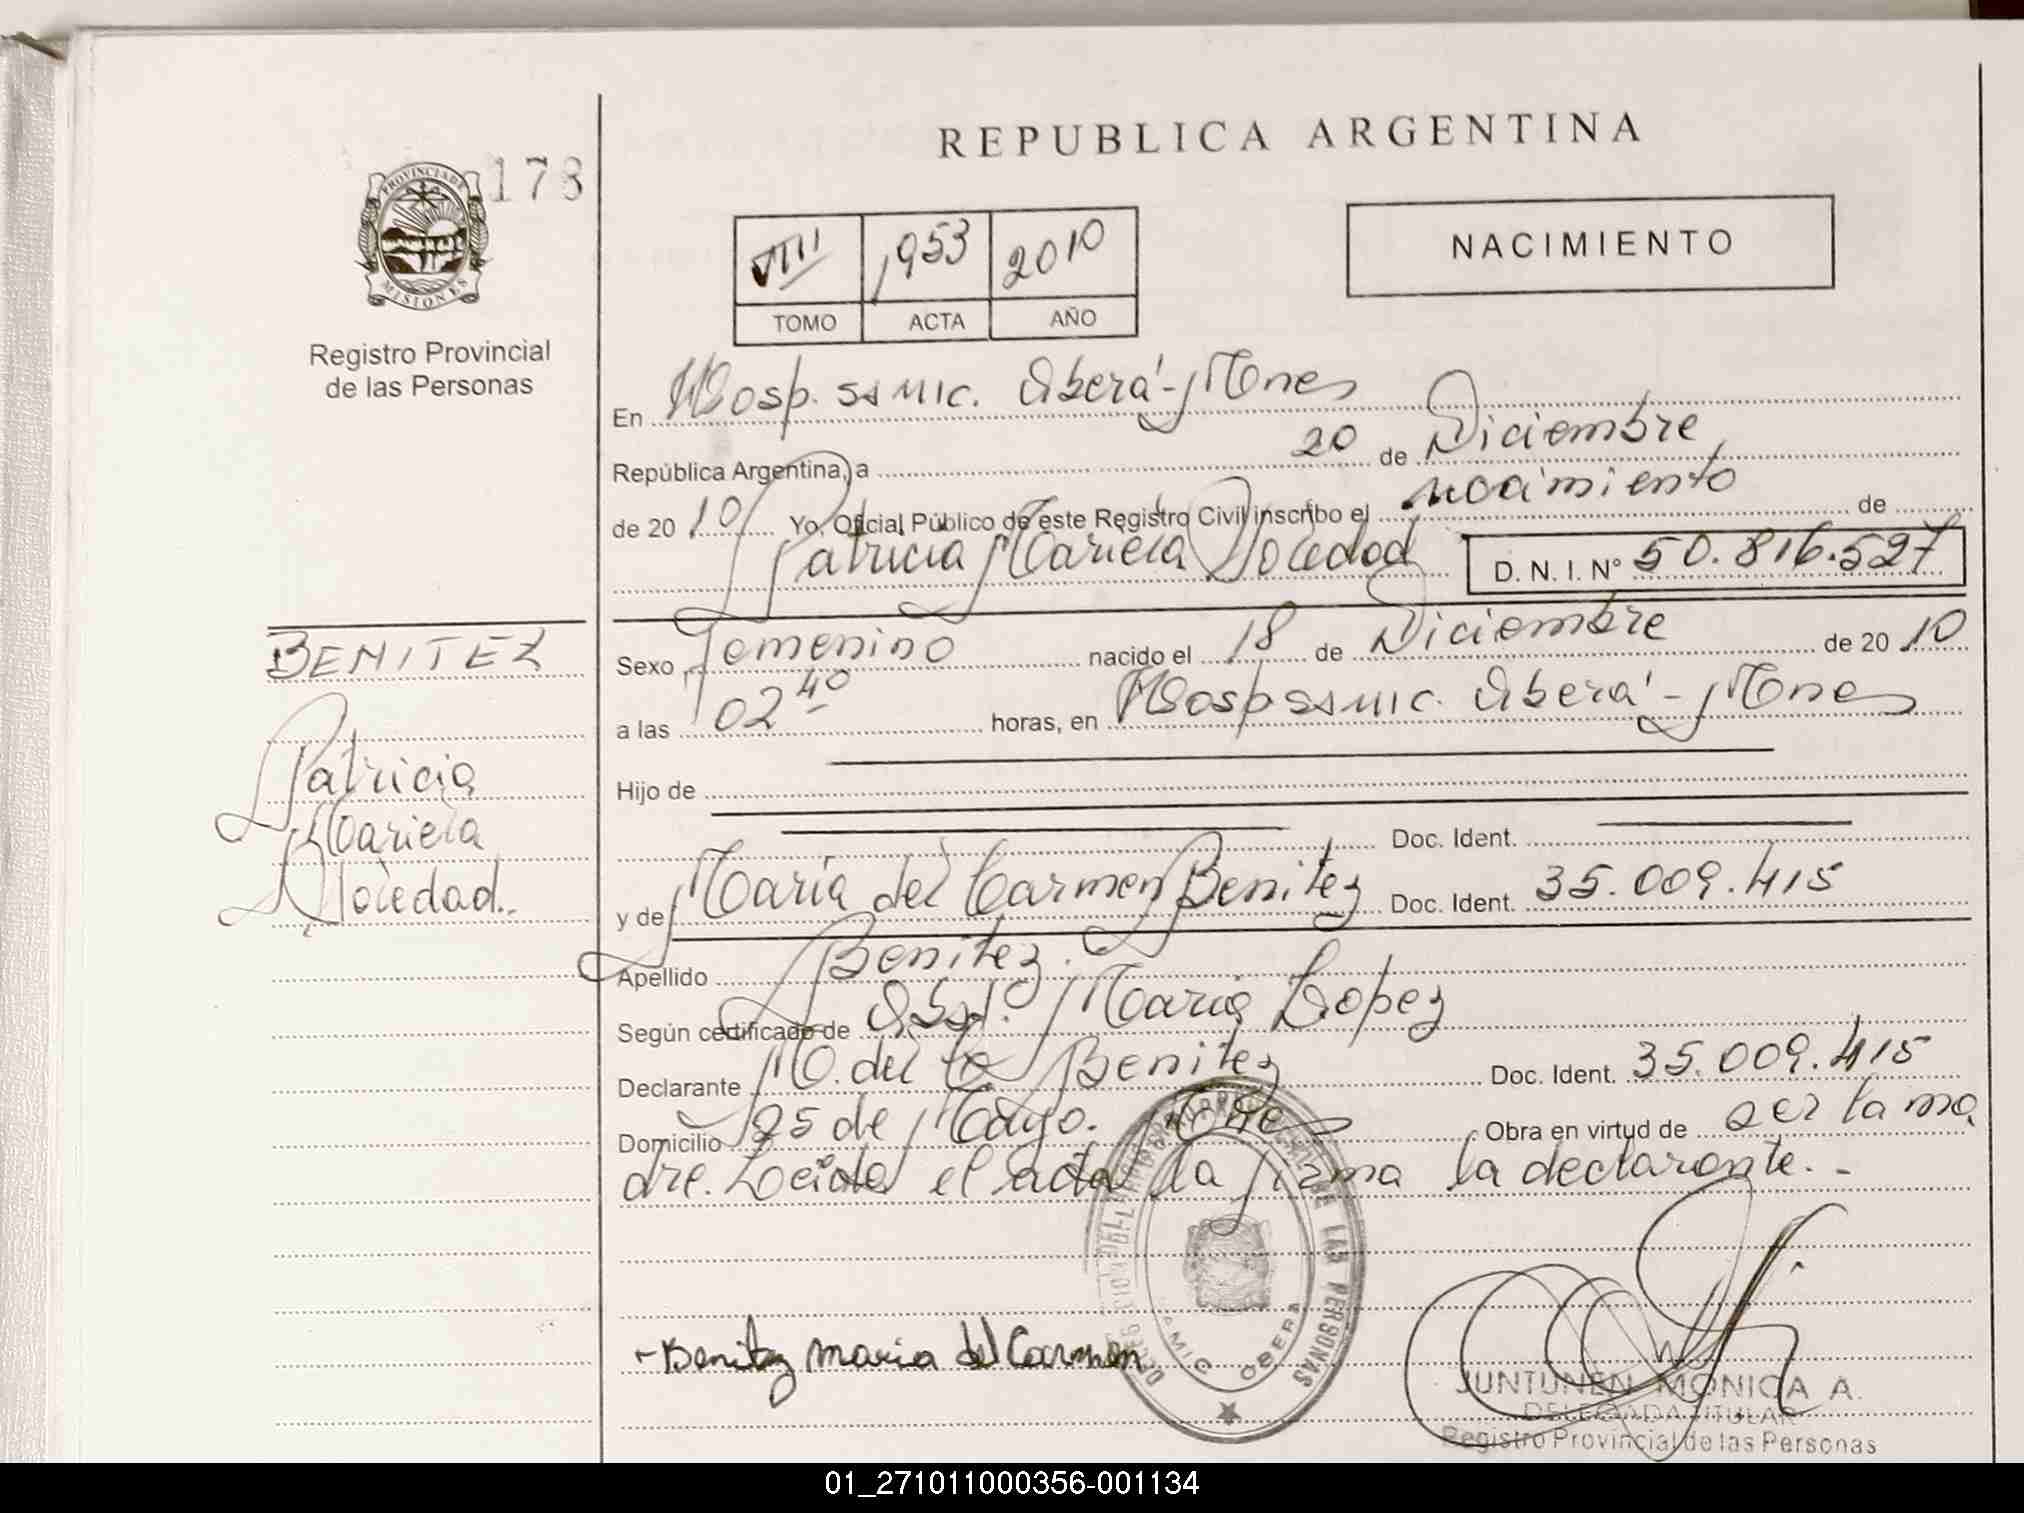 178
PROVINCIA DE
MISIONES
Registro Provincial
de las Personas
BENITEZ
Patricia
Mariela
Soledad.
REPUBLICA ARGENTINA
VIII 1953 2010
TOMO ACTA AÑO
NACIMIENTO
En Hosp. SAMIC. Oberá - Mnes
República Argentina, a 20 de Diciembre
de 2010 Yo, Oficial Público de este Registro Civil inscribo el nacimiento de
Patricia Mariela Soledad D. N. I. Nº 50.816.527
Sexo Femenino nacido el 18 de Diciembre de 2010
a las 02 40 horas, en Hosp SAMIC. Oberá - Mnes
Hijo de
Doc. Ident.
y de María del Carmen Benitez Doc. Ident. 35.009.415
Apellido Benitez.
Según certificado de Obst. Maria Lopez
Declarante M. del C. Benitez Doc. Ident. 35.009.415
Domicilio 25 de Mayo. Mnes Obra en virtud de ser la ma
dre. Leida el acta la firma la declarante. -
- Benitez maria del Carmen
DE LAS PERSONAS
SAMIC OBERA
JUNTUNEN MONICA A.
DELEGADA TITULAR
Registro Provincial de las Personas
01_271011000356-001134